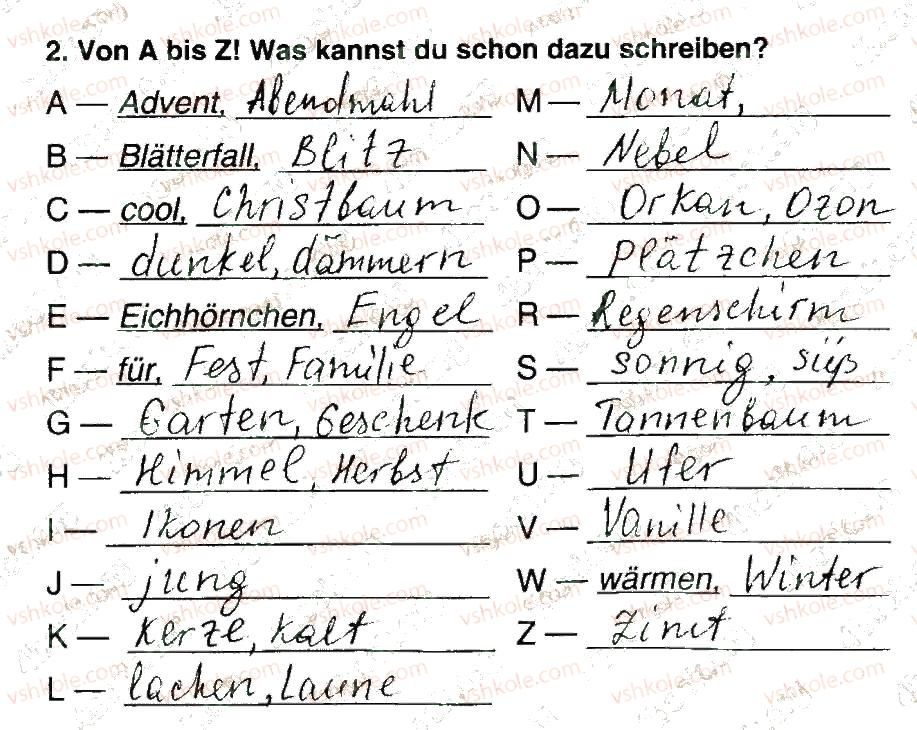 2. Von A bis Z! Was kannst du schon dazu schreiben?
A — Advent, Abendmahl
B — Blätterfall, Blitz
C — cool, Christbaum
D — dunkel, dämmern
E — Eichhörnchen, Engel
F — für, Fest, Familie
G — Garten, Geschenk
H — Himmel, Herbst
I — Ikonen
J — jung
K — Kerze, kalt
L — lachen, Laune
M — Monat,
N — Nebel
O — Orkan, Ozon
P — Plätzchen
R — Regenschirm
S — sonnig, süß
T — Tannenbaum
U — Ufer
V — Vanille
W — wärmen, Winter
Z — Zimt
vshkole.com